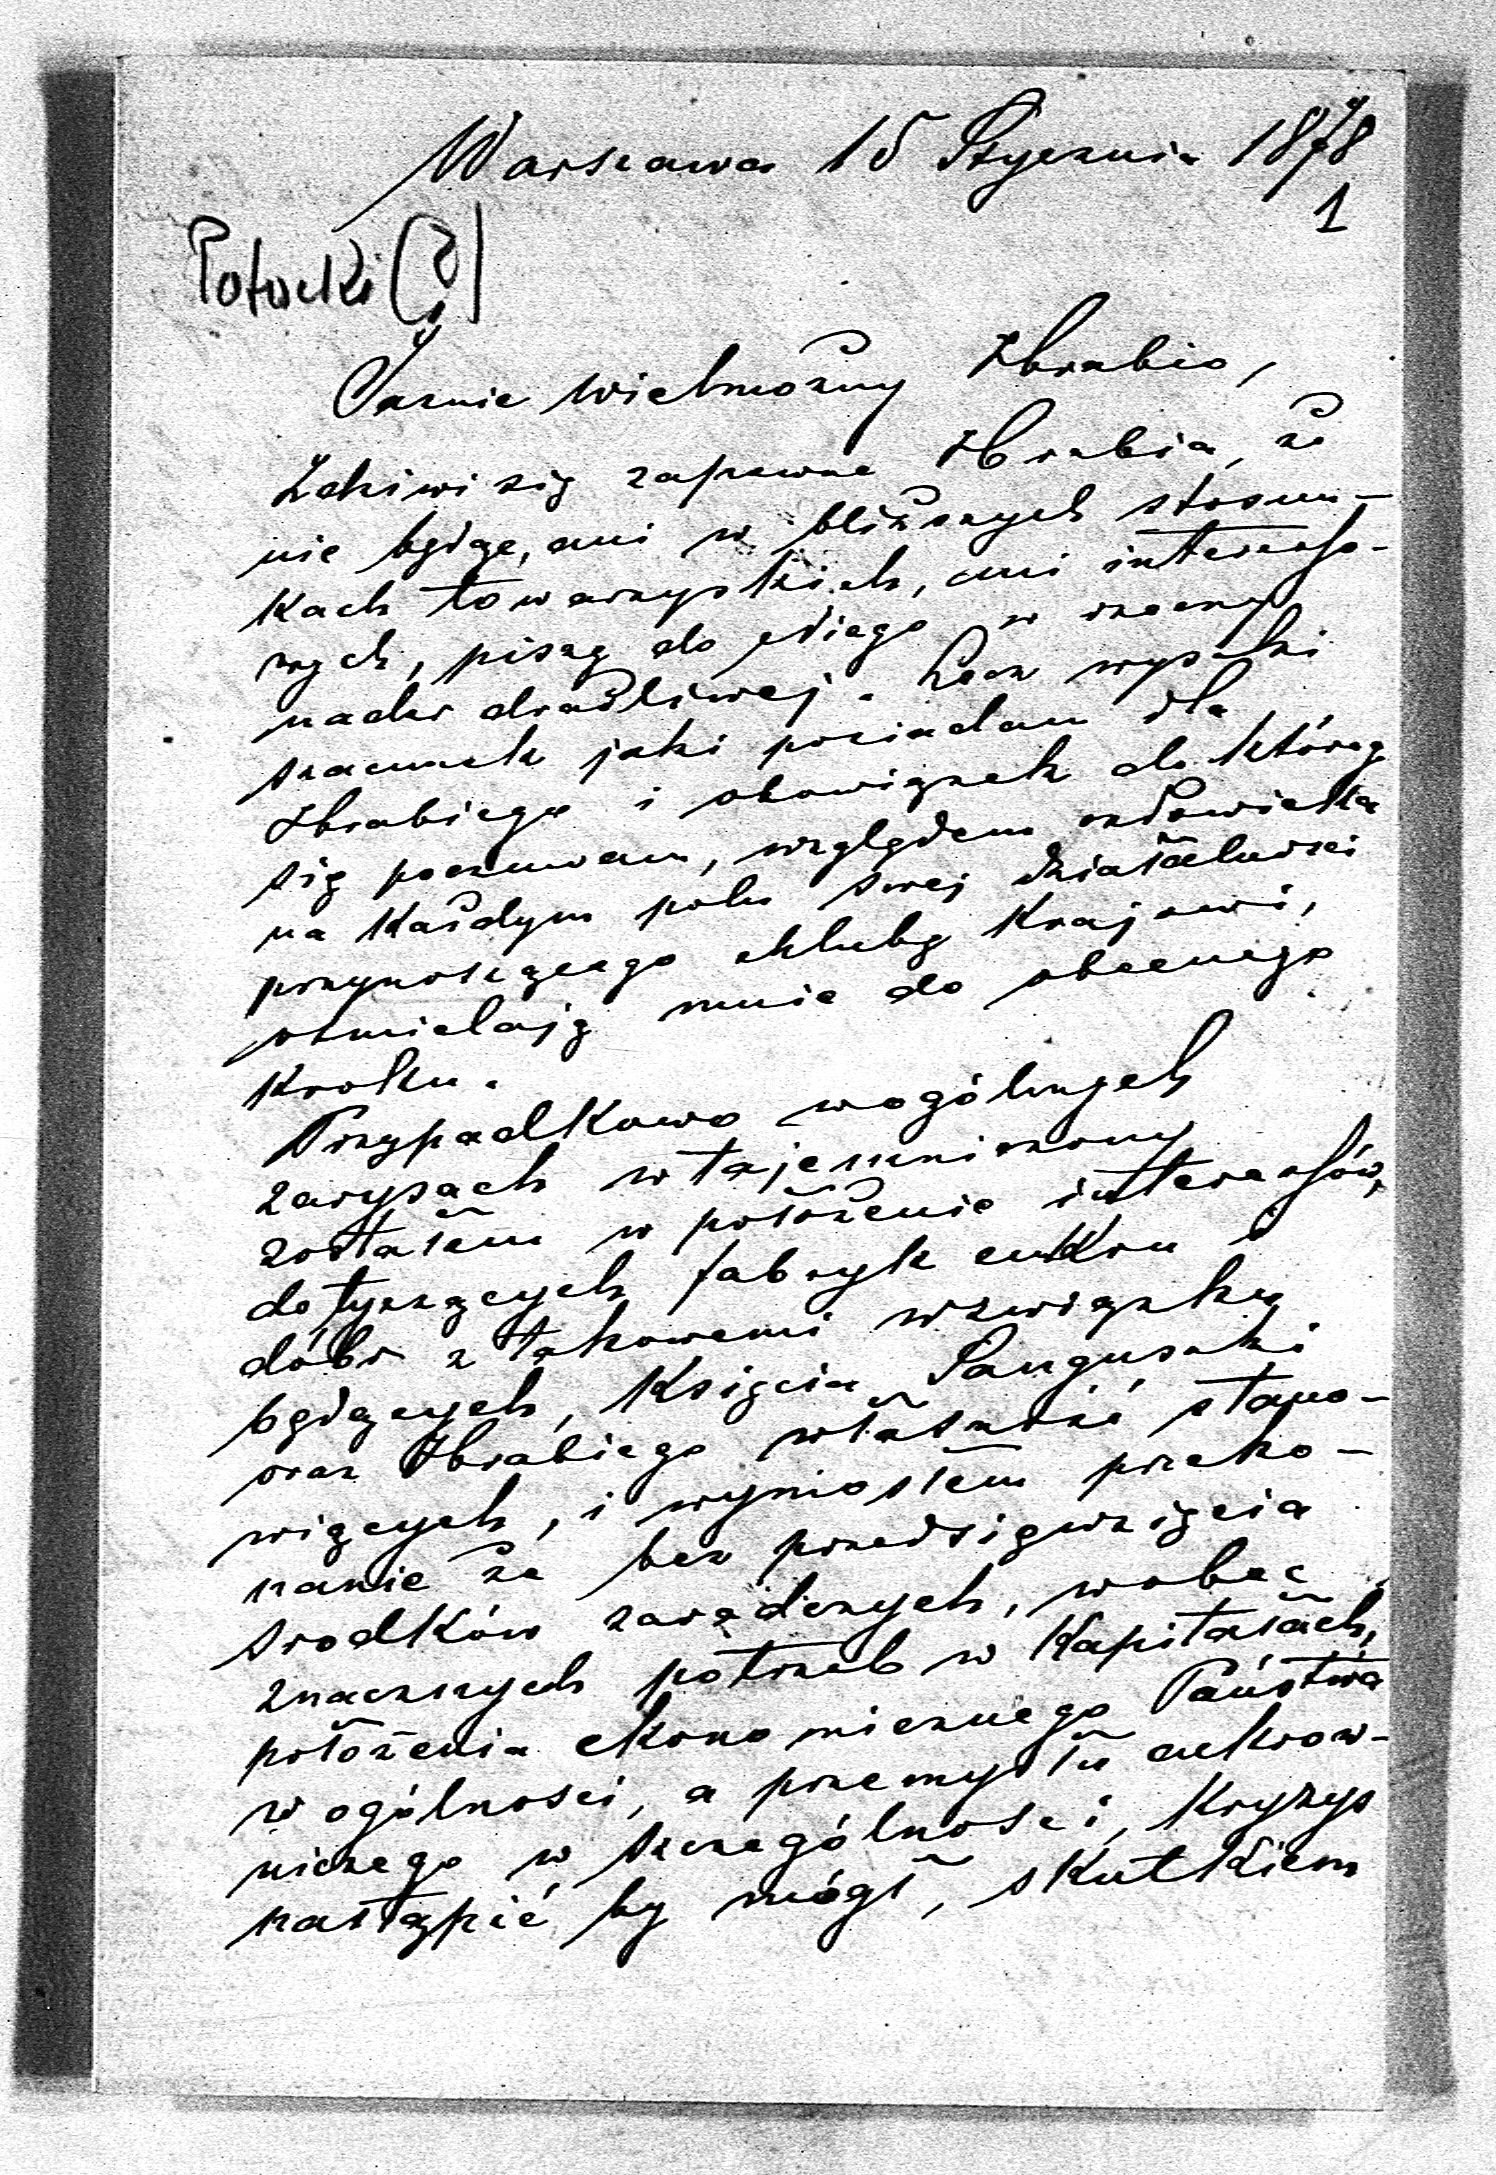 Warszawa 15 Stycznia 1878
1
Potocki (?)
Jaśnie Wielmożny Hrabio,
Zdziwi się zapewne Hrabia, że
nie będąc, ani w bliższych stosun-
kach towarzyskich, ani interesso-
wych, piszę do Niego w rzeczy
nader drażliwej. Lecz wysoki
szacunek jaki posiadam dla
Hrabiego i obowiązek do którego
się poczuwam, względem człowieka
na każdym polu swej działalności
przynoszącego chlubę Krajowi,
ośmielają mnie do obecnego
Kroku.
Przypadkowo wogólnych
zarysach wtajemniczony
zostałem w położenie interessów,
dotyczących fabryk cukru i
dóbr z takowemi wzwiązku
będących, Księcia Sanguszki
oraz Hrabiego własność stano-
wiących, i wyniosłem przeko-
nanie że bez przedsięwzięcia
srodków zaradczych, wobec
znacznych potrzeb w Kapitałach,
położenia ekonomicznego Państwa
w ogólności, a przemysłu cukrow-
niczego w szczególności, Kryzys
nastąpić by mógł, skutkiem